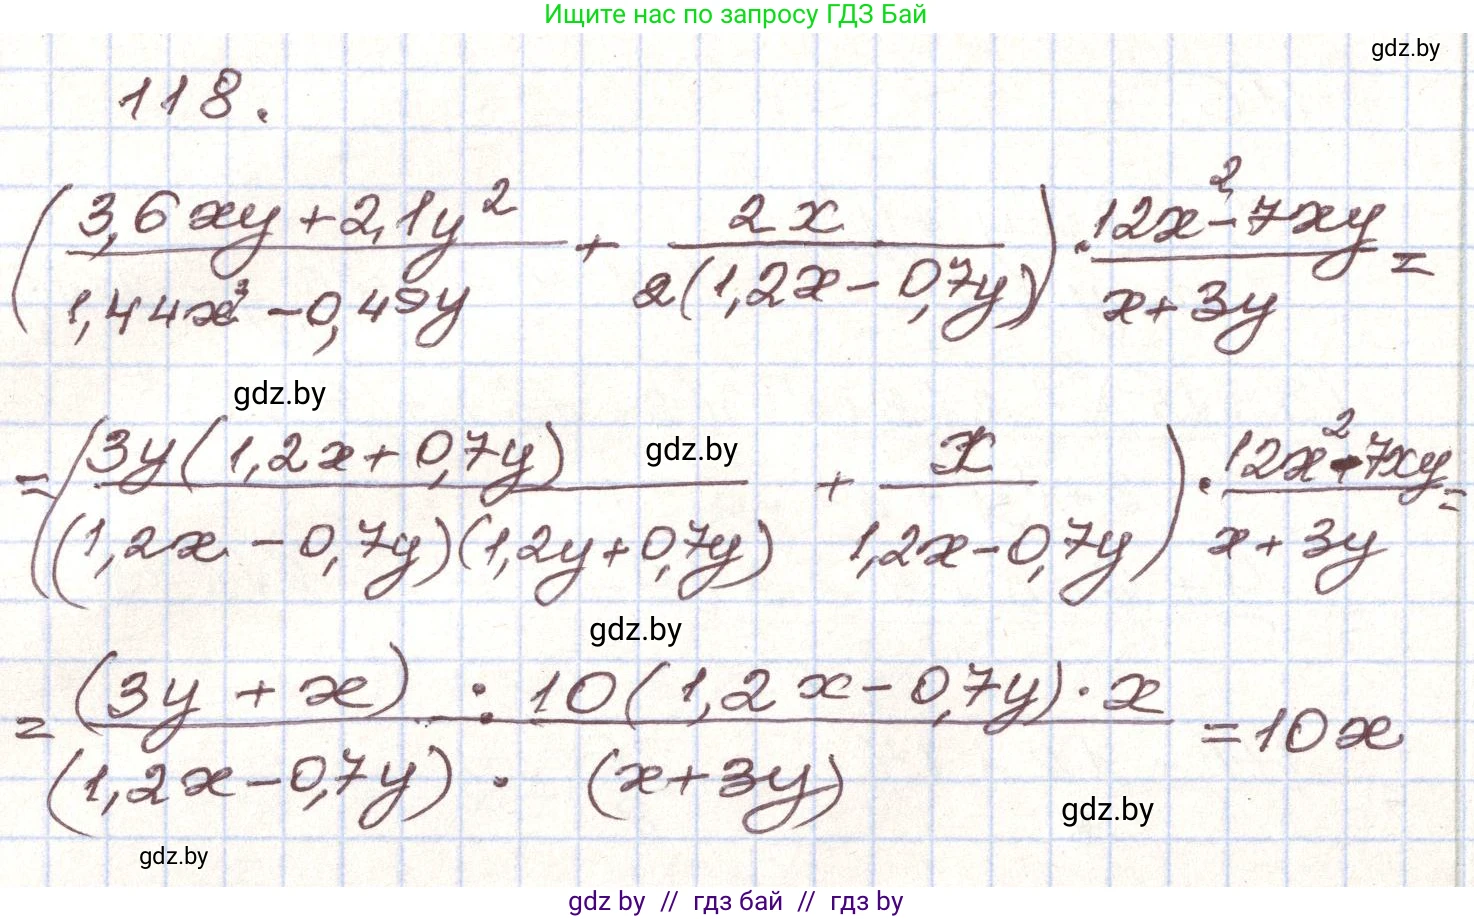 Ищите нас по запросу ГДЗ Бай
gdz.by
118.
(3,6xy + 2,1y² / 1,44x³ - 0,49y + 2x / 2(1,2x - 0,7y)) · 12x² - 7xy / x + 3y =
gdz.by
= (3y(1,2x + 0,7y) / (1,2x - 0,7y)(1,2y + 0,7y) + x / 1,2x - 0,7y) · 12x² - 7xy / x + 3y =
gdz.by
gdz.by
= (3y + x) : 10(1,2x - 0,7y) · x / (1,2x - 0,7y) · (x + 3y) = 10x
gdz.by
gdz.by
gdz by // гдз бай // гдз by